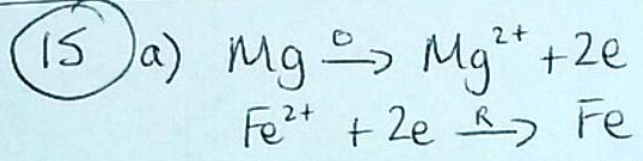 15 a) Mg O→ Mg²⁺ + 2e
Fe²⁺ + 2e R→ Fe